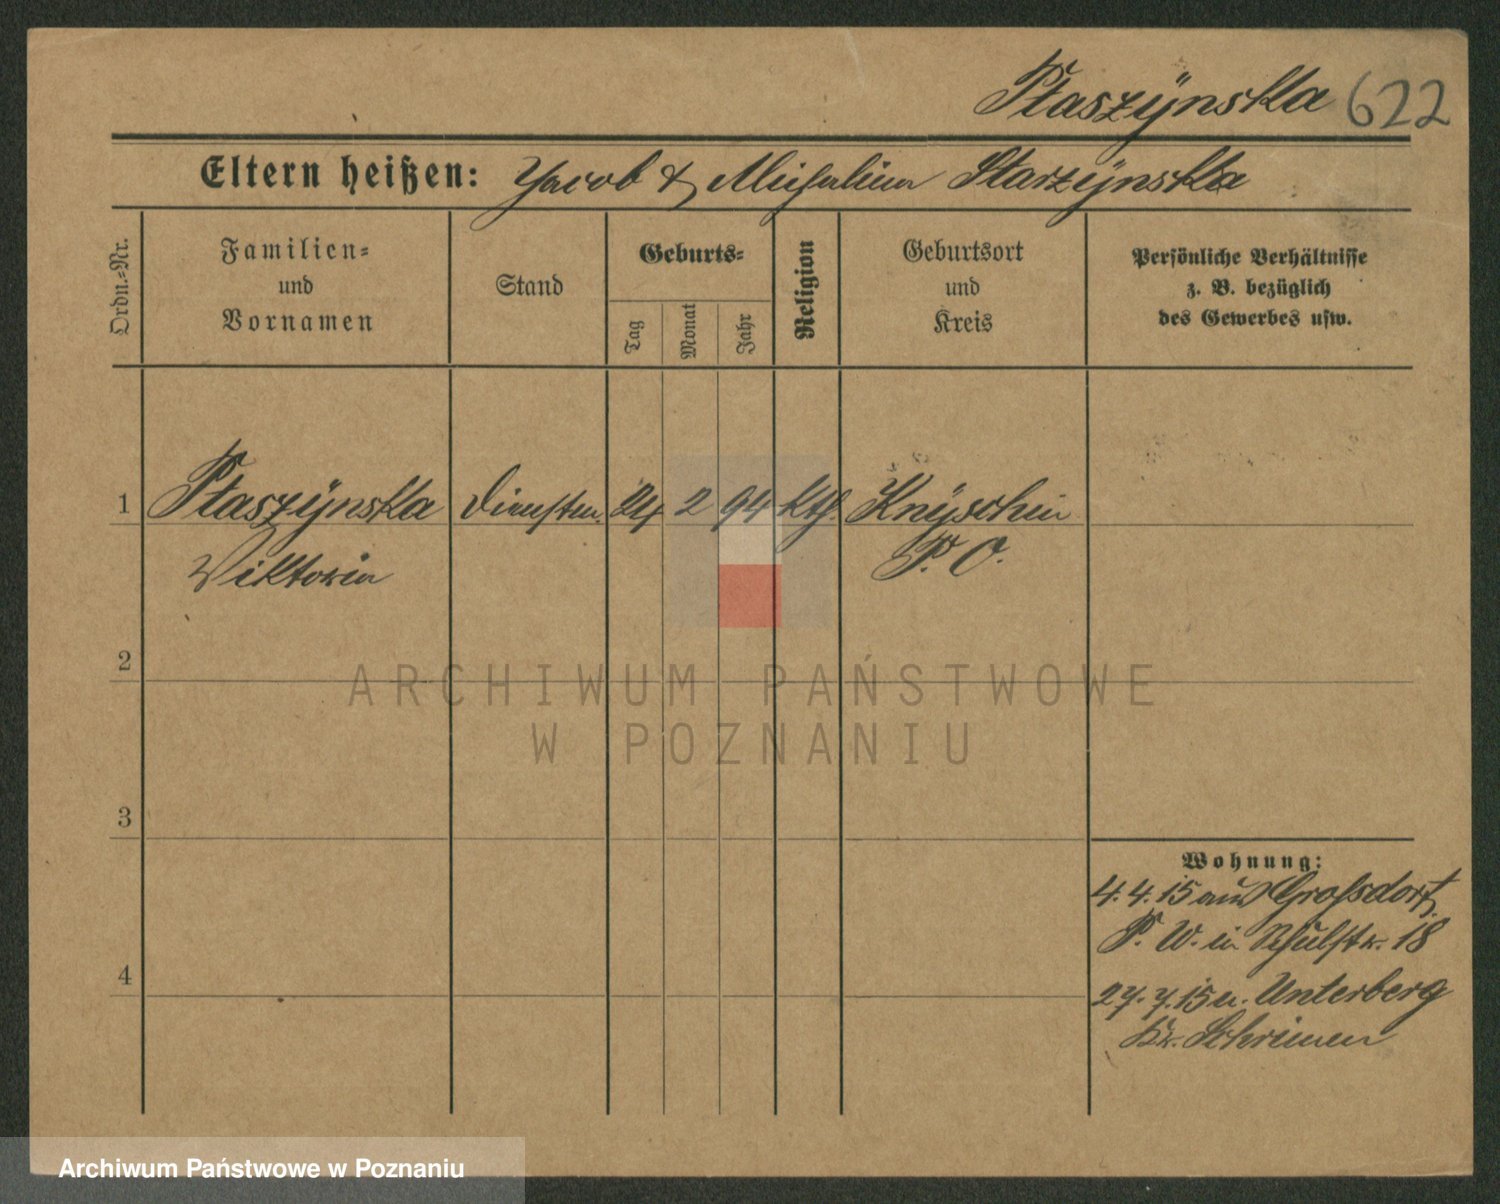 Ptaszÿnska 622
Eltern heißen: Jacob & Michalina Starzÿnska
Ordn.-Nr.
Familien-
und
Vornamen
Stand
Geburts-
Tag
Monat
Jahr
Religion
Geburtsort
und
Kreis
Persönliche Verhältnisse
z. B. bezüglich
des Gewerbes usw.
1 Ptaszÿnska 24 2 94 kth.
Viktoria
P. O.
2
ARCHIWUM PAŃSTWOWE
W POZNANIU
3
4
Wohnung:
4.4.15 aus Grossdorf,
P. W. in Schulstr. 18
27.7.15 n. Unterberg
Kr. Schrimm
Archiwum Państwowe w Poznaniu